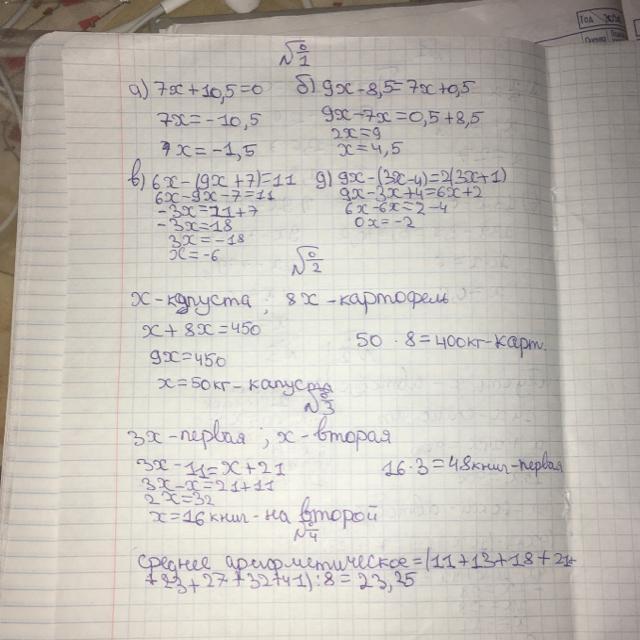 №1
а) 7x+10,5=0 б) 9x-8,5=7x+0,5
7x=-10,5 9x-7x=0,5+8,5
2x=9
x=-1,5 x=4,5
в) 6x-(9x+7)=11 д) 9x-(3x-4)=2(3x+1)
6x-9x-7=11 9x-3x+4=6x+2
-3x=11+7 6x-6x=2-4
-3x=18 0x=-2
3x=-18
x=-6
№2
x-капуста; 8x-картофель
x+8x=450
50·8=400кг-карт.
9x=450
x=50кг-капуста
№3
3x-первая; x-вторая
3x-11=x+21 16·3=48книг-первая
3x-x=21+11
2x=32
x=16книг-на второй
№4
среднее арифметическое=(11+13+18+21+
+23+27+32+41):8=23,25